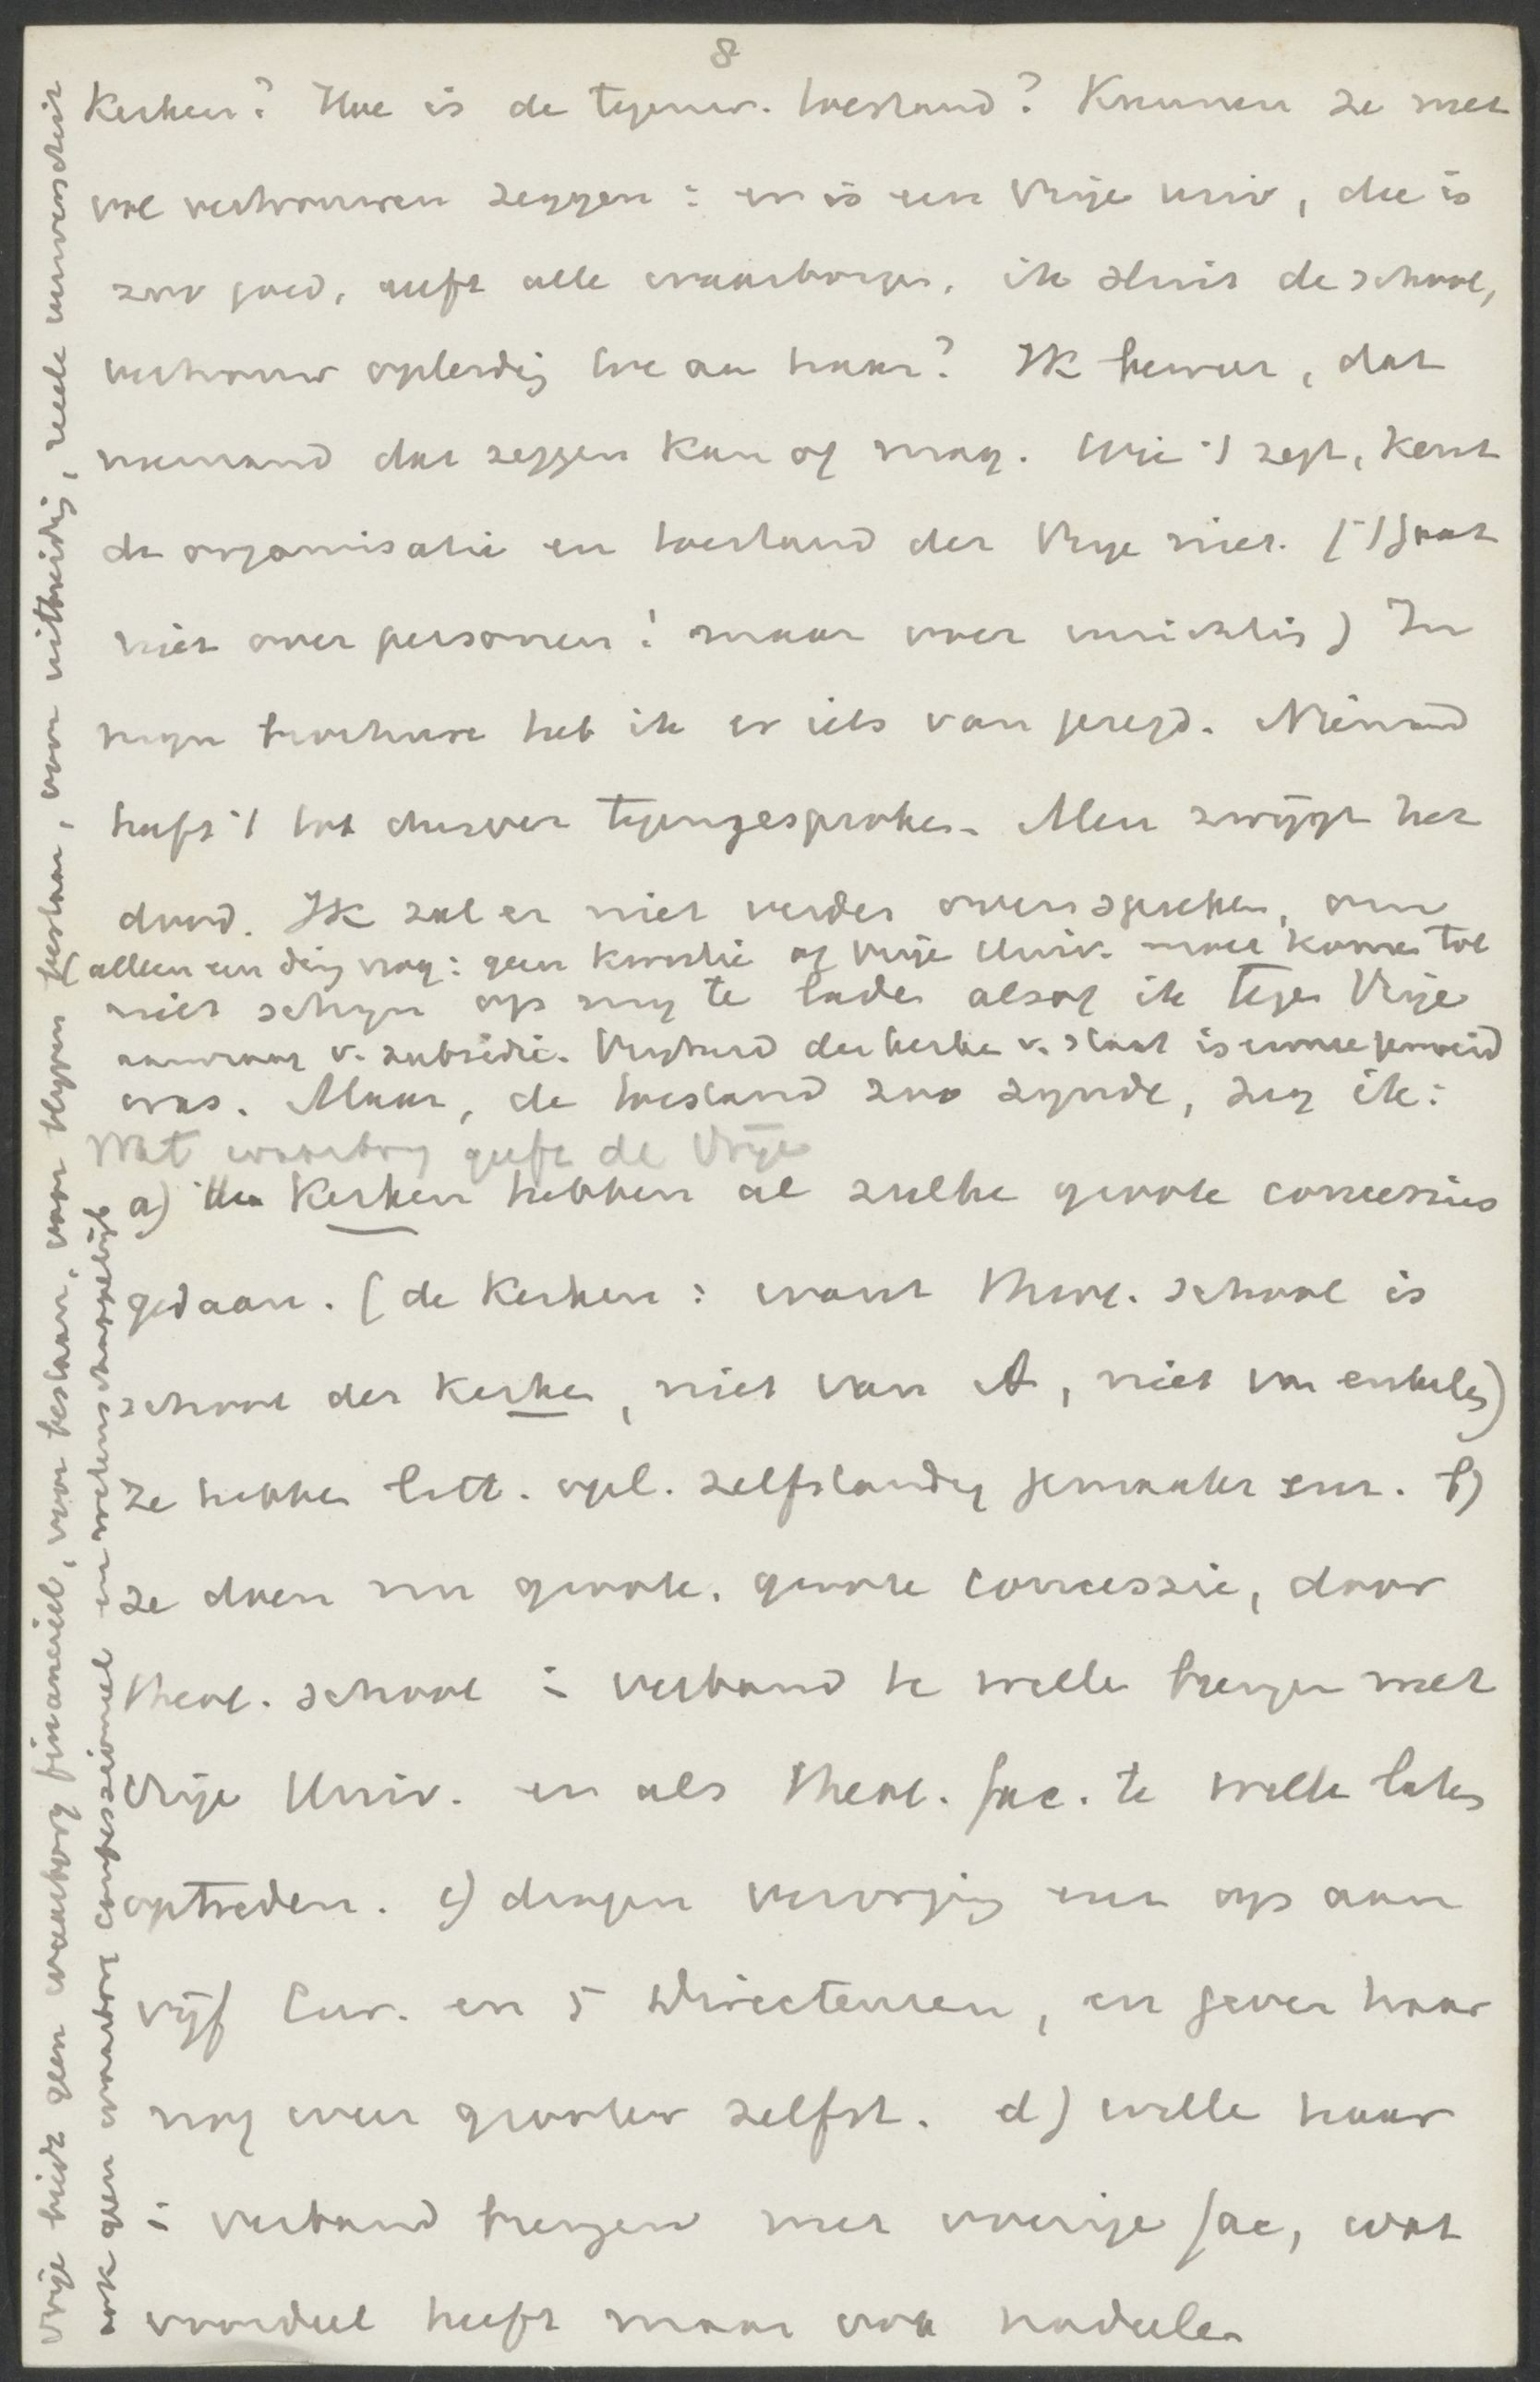 8
Kerken? Hoe is de tegenw. toestand? Kunnen ze met
vol vertrouwen zeggen: er is een Vrije univ, die is
zoo goed, geeft alle waarborgen, ik sluit de school,
vertrouw opleiding toe aan haar? Ik beweer, dat
niemand dat zeggen kan of mag. Wie 't zegt, kent
de organisatie en toestand der Vrije niet. ('t Gaat
niet over personen! maar over inrichting) In
mijn brochure heb ik er iets van gezegd. Niemand
heeft 't tot dusver tegengesproken. Men zwijgt het
dood. Ik zal er niet verder over spreken, om
(alleen een ding nog: geen kwestie of Vrije Univ. moet komen tot
niet schijn op mij te laden alsof ik tegen Vrije
aanvraag v. subsidie. Vrijheid der kerken v. staat is er mee gemoeid
was. Maar, de toestand zoo zijnde, zeg ik:
Wat waarborg geeft de Vrije
a) de Kerken hebben al zulke groote concessies
gedaan. (de Kerken: want Theol. school is
school der Kerken, niet van A, niet van enkelen)
Ze hebben litt. opl. zelfstandig gemaakt enz. b)
ze doen nu groote, groote concessie, door
Theol. school in verband te willen brengen met
Vrije Univ. en als Theol. fac. te willen laten
optreden. c) dragen verzorging enz op aan
vijf Cur. en 5 Directeuren, en geven haar
nog weer grooter zelfst. d) willen haar
in verband brengen met overige fac, wat
voordeel heeft maar ook nadeelen
Vrije biedt geen waarborg financieel, voor bestaan, voor blijven bestaan, voor uitbreiding, reëele universiteit
ook geen waarborg confessioneel en wetenschappelijk